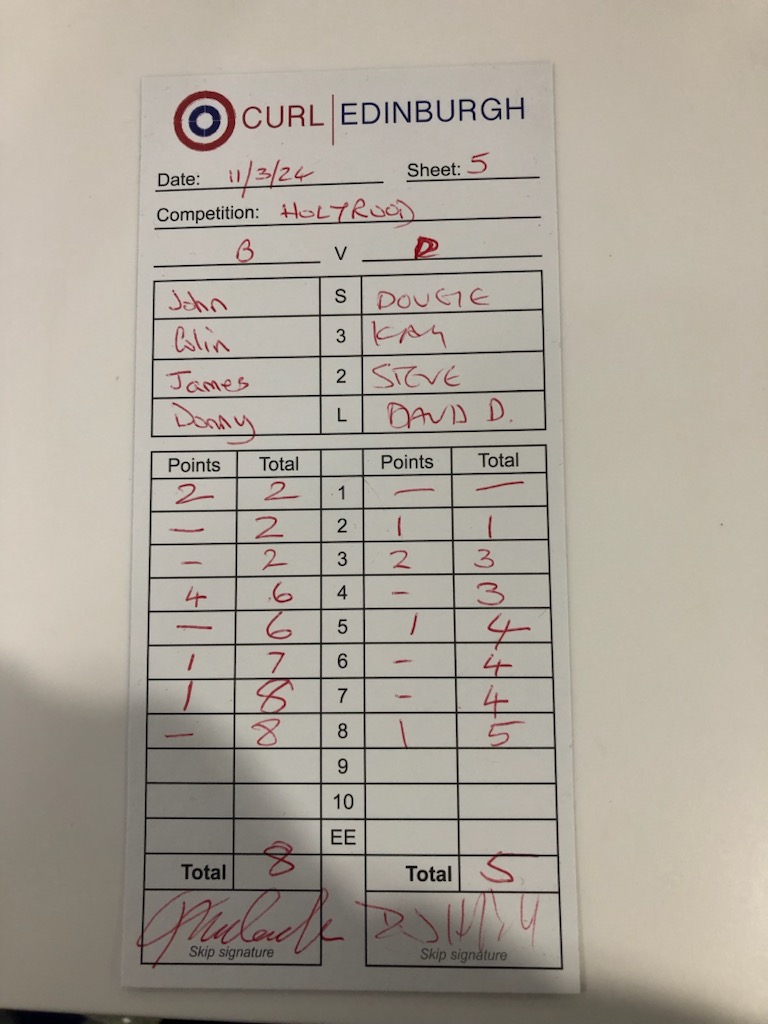 CURL | EDINBURGH
Date: 11/3/24 Sheet: 5
Competition: HOLYROOD
B V D
John S DOUGIE
Colin 3 KAY
James 2 STEVE
Donny L DAVID D.
Points Total Points Total
2 2 1 — —
— 2 2 1 1
- 2 3 2 3
4 6 4 - 3
— 6 5 1 4
1 7 6 - 4
1 8 7 - 4
— 8 8 1 5
9
10
EE
Total 8 Total 5
Skip signature Skip signature